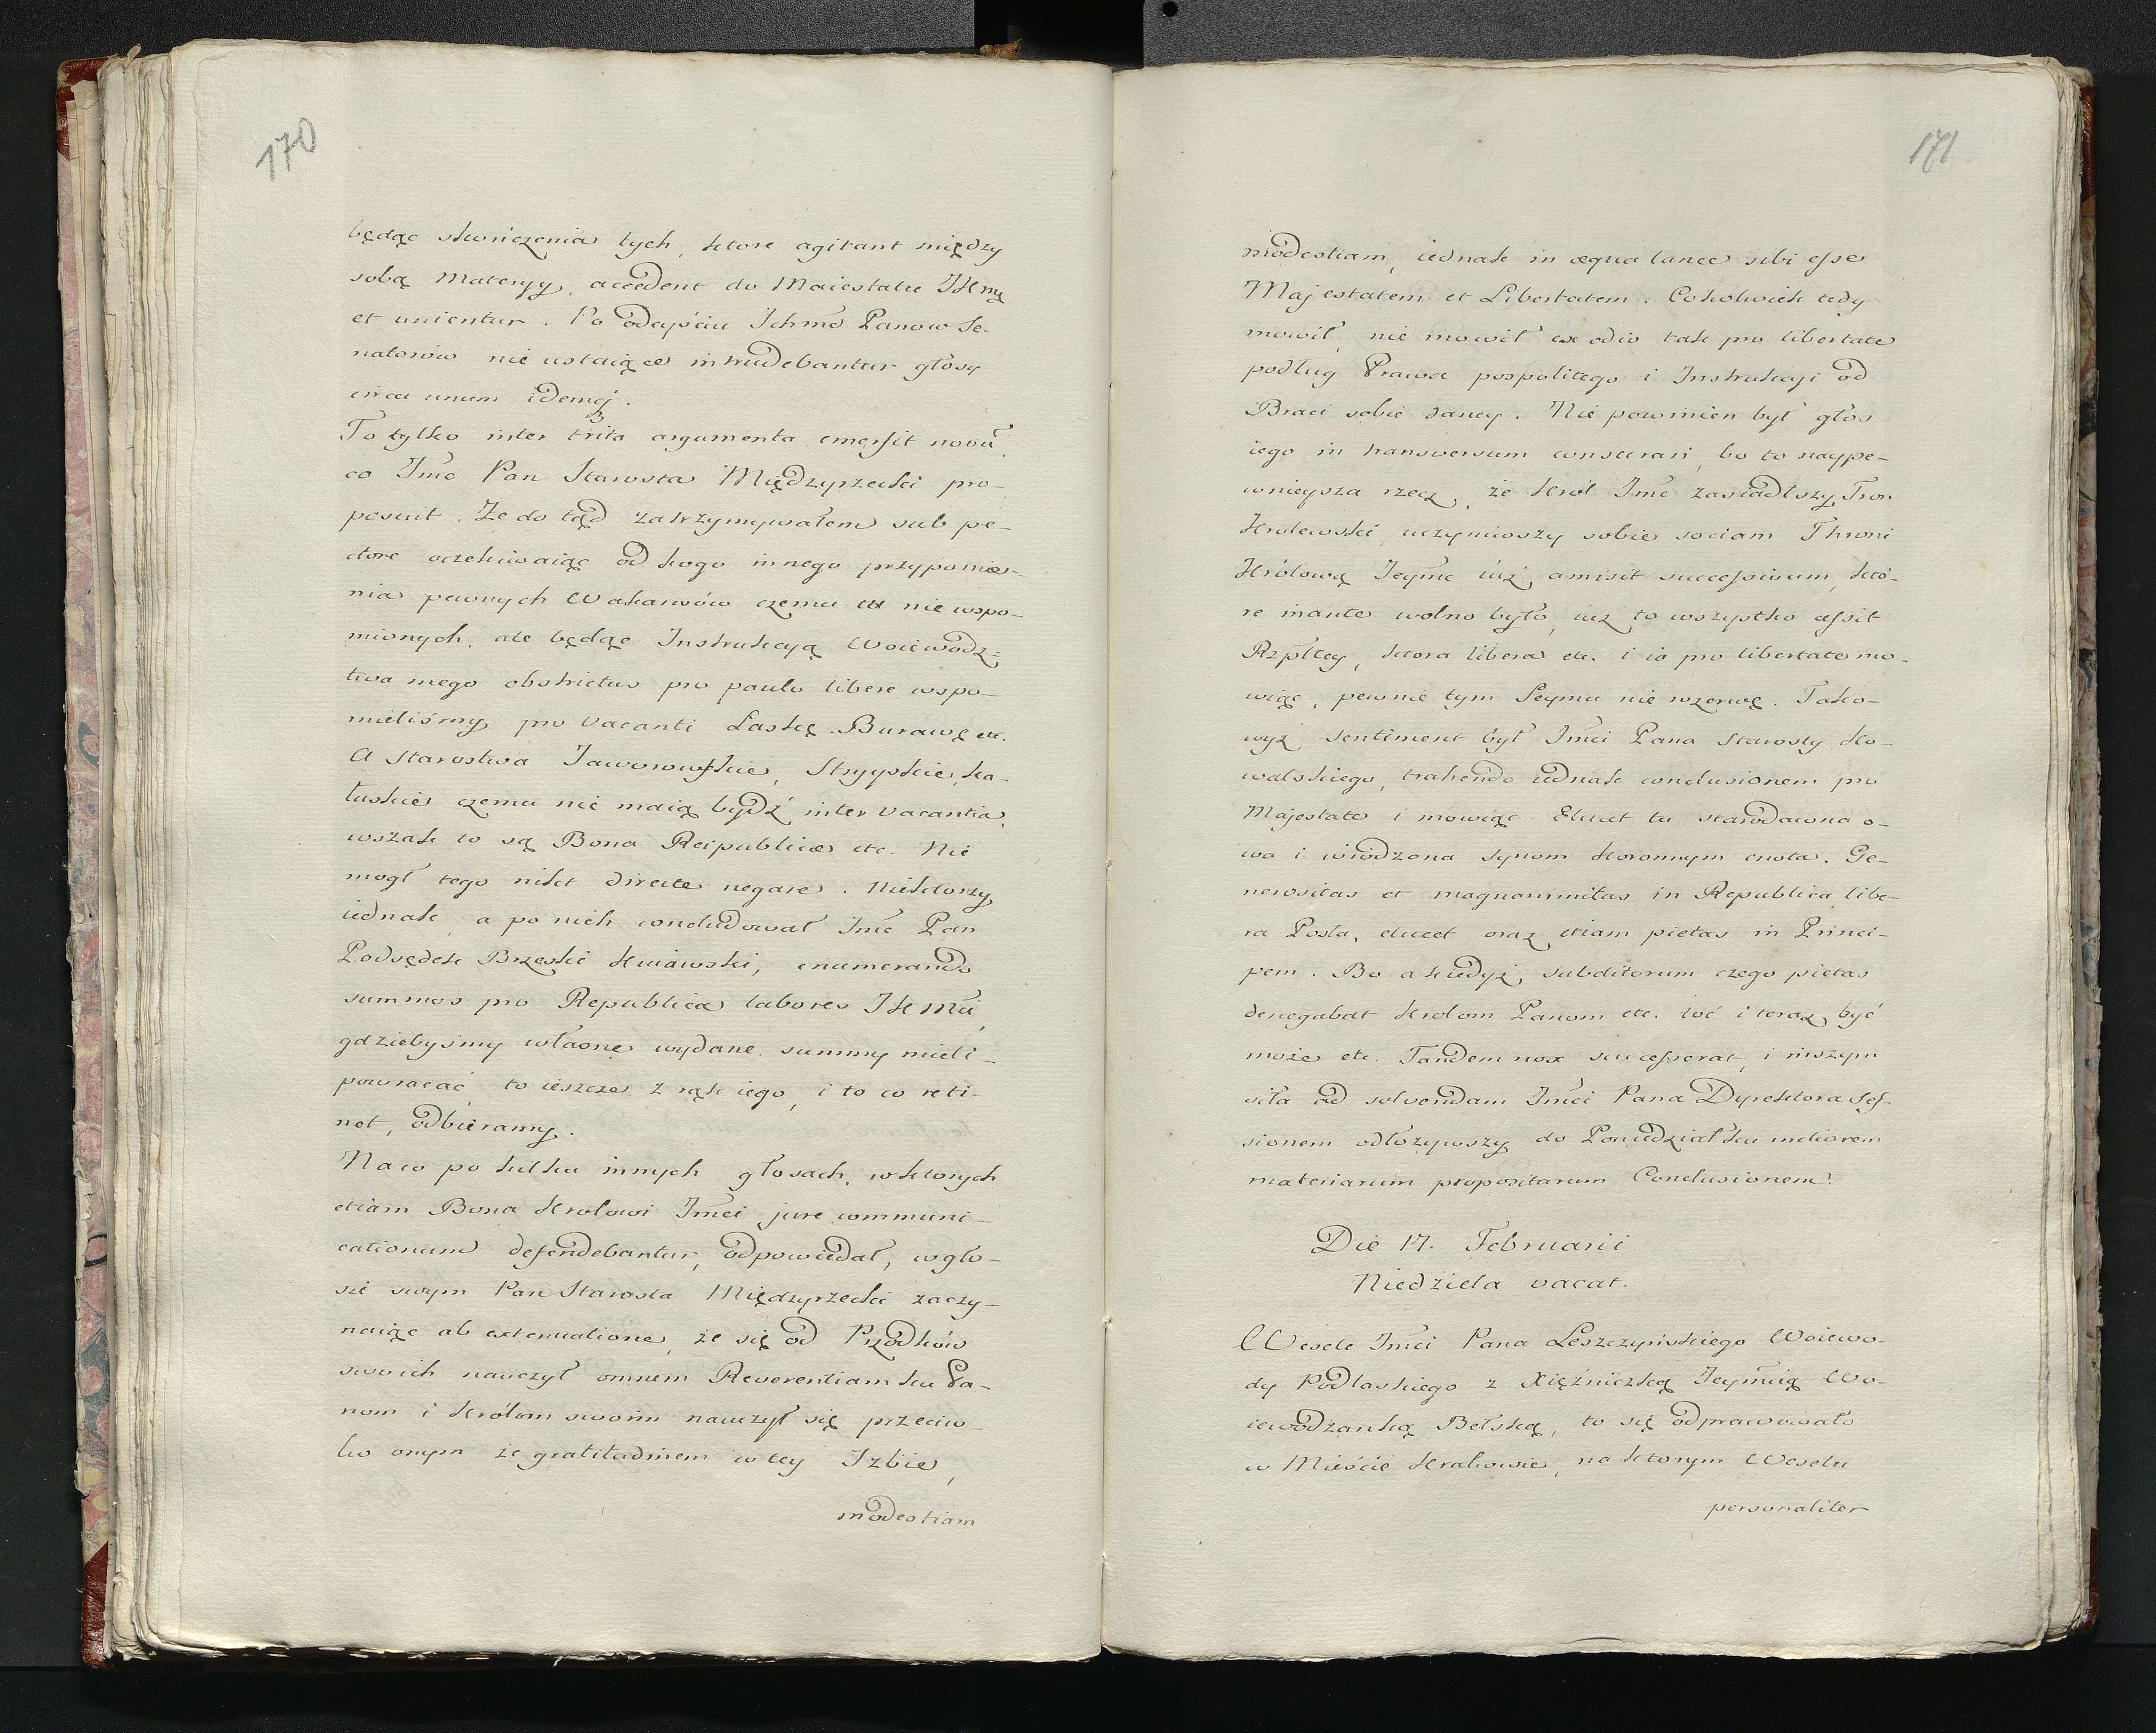 170
będąc skończenia tych, ktore agitant między
sobą Materyy, accedent do Maiestatu JKmy
et unientur. Po odeyściu Ichmć Panow Se-
natorów nie ustaiące intrudebantur głosy
circa unum idemq.
To tylko inter trita argumenta emersit novũ,
co Jmć Pan Starosta Międzyrzecki pro-
posuit. Ze do tąd zatrzymywałem sub pe-
ctore oczekiwaiąc od kogo innego przypomnie-
nia pewnych Wakansów czemu tu nie wspo-
mionych, ale będąc Instrukcyą Woiewodz-
twa mego obstrictus pro paulo libere wspo-
mieliśmy pro vacanti Laskę Burawę etc.
A Starostwa Jaworowskie, Stryyskie, ka-
łuskie czemu nie maią bydź inter vacantia,
wszak to są Bona Reipublicae etc. Nie
mogł tego nikt directe negare. Niektorzy
iednak, a po nich concludował Jmć Pan
Podsędek Brzeski Kuiawski, enumerando
summos pro Republica labores JKMci,
gdziebyśmy własne wydane summy mieli
powracać to ieszcze z rąk iego, i to co reti-
net, odbieramy.
Na co po kilku innych głosach, w ktorych
etiam Bona Krolowi Jmci jure communi-
cationum defendebantur, odpowiedał, w gło-
sie swym Pan Starosta Międzyrzecki zaczy-
naiąc ab extenuatione, że się od Przodków
swoich nauczył omnem Reverentiam ku Pa-
nom i Królom swoim nauczył się przeciw-
ko onym ze gratitudinem w tey Izbie,
modestiam
171
modestiam, iednak in aequa lance sibi esse
Majestatem et Libertatem. Cokolwiek tedy
mowił, nie mowił ex odio tak pro libertate
podług Prawa pospolitego i Instrukcyi od
Braci sobie daney. Nie powinien był głos
iego in transversum censerari, bo to naype-
wnieysza rzecz, że Krol Jmć zasiadłszy Tron
Krolewski, uczyniwszy sobie sociam Throni
Królową Jeymć iuż amisit successivam, któ-
re inante wolno było, iuż to wszystko cessit
Rzpltey, ktora libera etc. i ia pro libertate mo-
wiąc, pewnie tym Seymu nie wzerwę. Tako-
wyż sentiment był Jmci Pana Starosty Ko-
walskiego, trahendo iednak conclusionem pro
Majestate i mowiąc. Elucet tu starodawna o-
wa i wrodzona synom Koronnym cnota. Ge-
nerositas et magnanimitas in Republica libe-
ra Posła, elucet oraz etiam pietas in Princi-
pem. Bo a kiedyż subditorum czego pietas
denegabat Krolom Panom etc. toć i teraz być
może etc. Tandem nox successerat, i ruszyn
siła ad solvendam Jmci Pana Dyrektora Ses-
sionem odłożywszy do Poniedziałku meliorem
materiarum propositarum Conclusionem.
Die 17. Februarii.
Niedziela vacat.
Wesele Jmci Pana Leszczyńskiego Woiewo-
dy Podlaskiego z Xiężniczką Jeymcią Wo-
iewodzanką Bełską, to się odprawowało
w Mieście Krakowie, na ktorym Weselu
personaliter